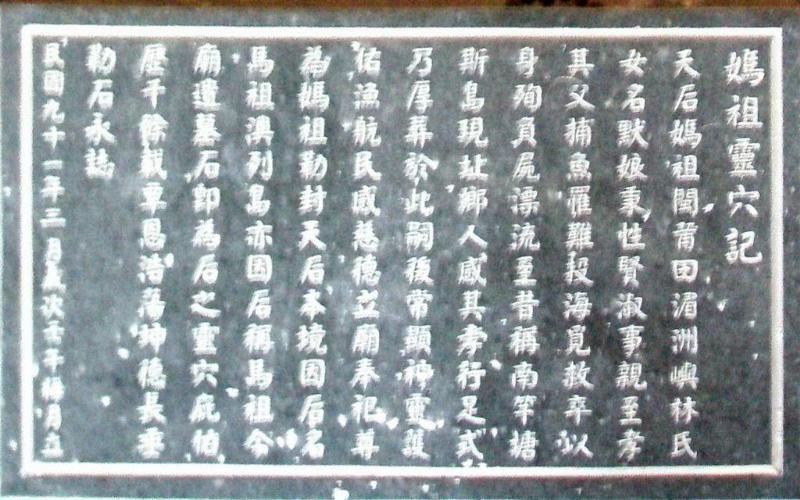 媽祖靈穴記
天后媽祖閩莆田湄洲嶼林氏
女名默娘秉性賢淑事親至孝
其父捕魚罹難投海覓救卒以
身殉負屍漂流至昔稱南竿塘
斯島現址鄉人感其孝行足式
乃厚葬於此嗣後常顯神靈護
佑漁航民感慈德立廟奉祀尊
為媽祖勒封天后本境因后名
馬祖澳列島亦因后稱馬祖今
廟遺墓石卽為后之靈穴庇怙
歷千餘載覃恩浩蕩坤德長垂
勒石永誌
民國九十一年三月歲次壬午梅月立